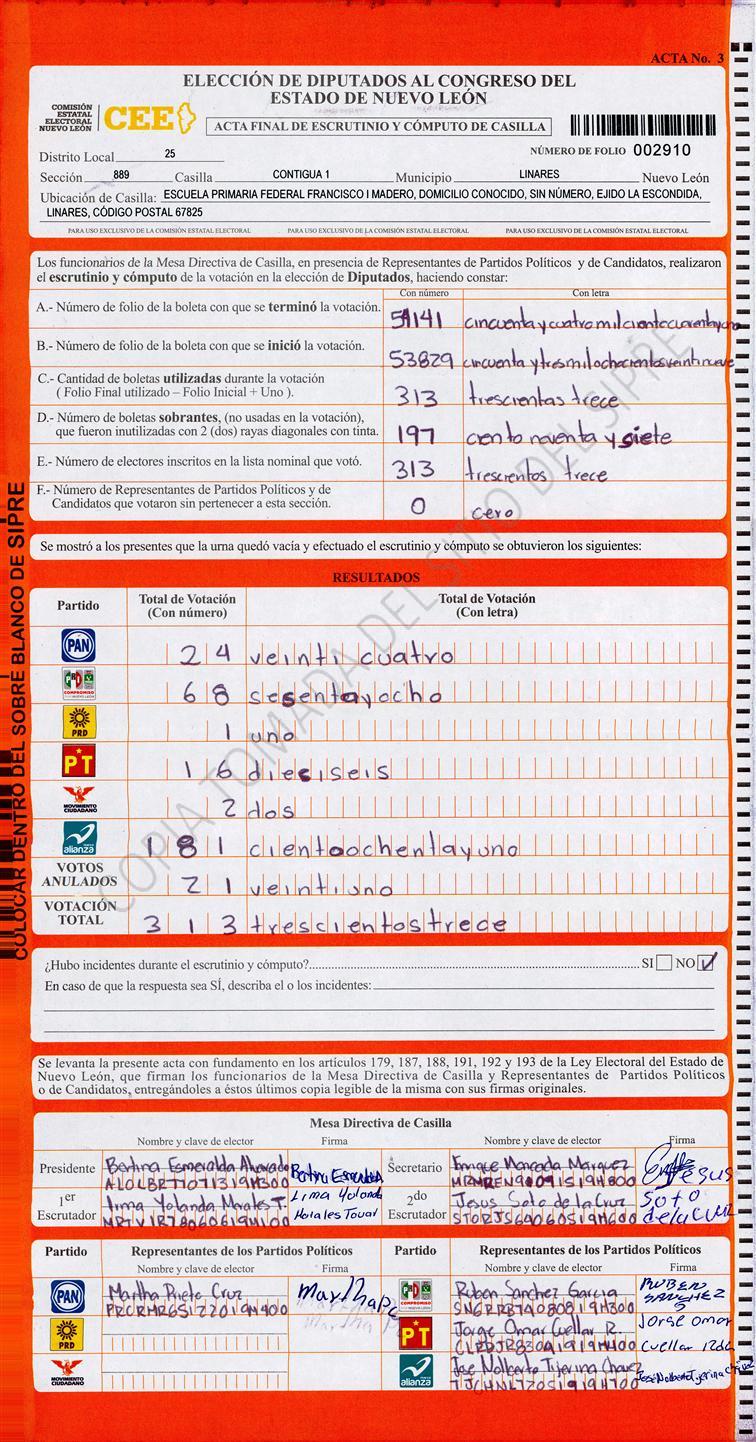 ACTA No. 3
ELECCIÓN DE DIPUTADOS AL CONGRESO DEL
ESTADO DE NUEVO LEÓN
COMISIÓN
ESTATAL
ELECTORAL
NUEVO LEÓN
CEE
ACTA FINAL DE ESCRUTINIO Y CÓMPUTO DE CASILLA
Distrito Local 25
NÚMERO DE FOLIO 002910
Sección 889 Casilla CONTIGUA 1 Municipio LINARES Nuevo León
Ubicación de Casilla: ESCUELA PRIMARIA FEDERAL FRANCISCO I MADERO, DOMICILIO CONOCIDO, SIN NÚMERO, EJIDO LA ESCONDIDA,
LINARES, CÓDIGO POSTAL 67825
PARA USO EXCLUSIVO DE LA COMISIÓN ESTATAL ELECTORAL PARA USO EXCLUSIVO DE LA COMISIÓN ESTATAL ELECTORAL PARA USO EXCLUSIVO DE LA COMISIÓN ESTATAL ELECTORAL
Los funcionarios de la Mesa Directiva de Casilla, en presencia de Representantes de Partidos Políticos y de Candidatos, realizaron
el escrutinio y cómputo de la votación en la elección de Diputados, haciendo constar:
Con número Con letra
A.- Número de folio de la boleta con que se terminó la votación. 54141 cincuenta y cuatro mil ciento cuarenta y uno
B.- Número de folio de la boleta con que se inició la votación. 53829 cincuenta y tres mil ochocientos veintinueve
C.- Cantidad de boletas utilizadas durante la votación
( Folio Final utilizado – Folio Inicial + Uno ). 313 trescientas trece
D.- Número de boletas sobrantes, (no usadas en la votación),
que fueron inutilizadas con 2 (dos) rayas diagonales con tinta. 197 ciento noventa y siete
E.- Número de electores inscritos en la lista nominal que votó. 313 trescientos trece
F.- Número de Representantes de Partidos Políticos y de
Candidatos que votaron sin pertenecer a esta sección. 0 cero
Se mostró a los presentes que la urna quedó vacía y efectuado el escrutinio y cómputo se obtuvieron los siguientes:
RESULTADOS
Partido Total de Votación (Con número) Total de Votación (Con letra)
PAN 24 veinti cuatro
PRI COMPROMISO 68 sesentayocho
PRD 1 uno
PT 16 dieciseis
MOVIMIENTO CIUDADANO 2 dos
alianza 181 cientoochentayuno
VOTOS ANULADOS 21 veintiuno
VOTACIÓN TOTAL 313 trescientostrece
¿Hubo incidentes durante el escrutinio y cómputo? SI NO ✓
En caso de que la respuesta sea SÍ, describa el o los incidentes:
Se levanta la presente acta con fundamento en los artículos 179, 187, 188, 191, 192 y 193 de la Ley Electoral del Estado de
Nuevo León, que firman los funcionarios de la Mesa Directiva de Casilla y Representantes de Partidos Políticos
o de Candidatos, entregándoles a éstos últimos copia legible de la misma con sus firmas originales.
Mesa Directiva de Casilla
Nombre y clave de elector Firma Nombre y clave de elector Firma
Presidente Bertina Esmeralda Alvarado Bertina Esmeralda
Secretario Enrique Moncada Marquez
1er Escrutador Irma Yolanda Morales T. Lima Yolanda Morales Tovar
2do Escrutador Jesus Soto de la Cruz Jesus Soto de la Cruz
Partido Representantes de los Partidos Políticos Partido Representantes de los Partidos Políticos
Nombre y clave de elector Firma Nombre y clave de elector Firma
PAN Martha Prieto Cruz Martha P.
Ruben Sanchez Garcia RUBEN SANCHEZ
PRD
PT Jorge Omar Cuellar R. Jorge Omar Cuellar
MOVIMIENTO CIUDADANO
alianza Jose Nolberto Tijerina Chavez José Nolberto Tijerina Chavez
COLOCAR DENTRO DEL SOBRE BLANCO DE SIPRE
COPIA TOMADA DEL SITIO DEL SIPRE